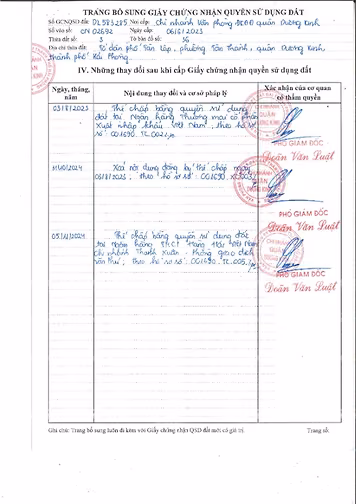 TRANG BỔ SUNG GIẤY CHỨNG NHẬN QUYỀN SỬ DỤNG ĐẤT
Số GCNQSD đất: DL583285 Nơi cấp: Chi nhánh Văn phòng ĐKĐĐ quận Dương Kinh
Số vào sổ: CN 02692 Ngày cấp: 06/6/2023
Thửa đất số: 3 Tờ bản đồ số: 36
Địa chỉ thửa đất: Tổ dân phố Tân Lập, phường Tân Thành, quận Dương Kinh,
thành phố Hải Phòng.
IV. Những thay đổi sau khi cấp Giấy chứng nhận quyền sử dụng đất
Ngày, tháng, năm
Nội dung thay đổi và cơ sở pháp lý
Xác nhận của cơ quan có thẩm quyền
03/8/2023
Thế chấp bằng quyền sử dụng
đất tại Ngân hàng Thương mại cổ phần
Xuất nhập khẩu Việt Nam theo hồ sơ
số 001690.
PHÓ GIÁM ĐỐC
Doãn Văn Luật
Xoá nội dung đăng ký thế chấp ngày
theo hồ sơ số 001690.
PHÓ GIÁM ĐỐC
Doãn Văn Luật
Thế chấp bằng quyền sử dụng đất
tại Ngân hàng TMCP Hàng Hải Việt Nam
chi nhánh Thanh Xuân - Phòng giao dịch
theo hồ sơ số 001690.
PHÓ GIÁM ĐỐC
Doãn Văn Luật
Ghi chú: Trang bổ sung luôn đi kèm với Giấy chứng nhận QSD đất mới có giá trị. Trang số: